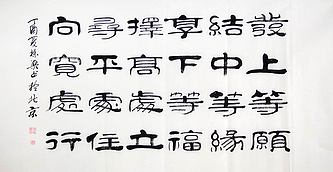 發上等願
結中等緣
享下等福
擇高處立
尋平處住
向寬處行
丁酉夏林樂占於北京